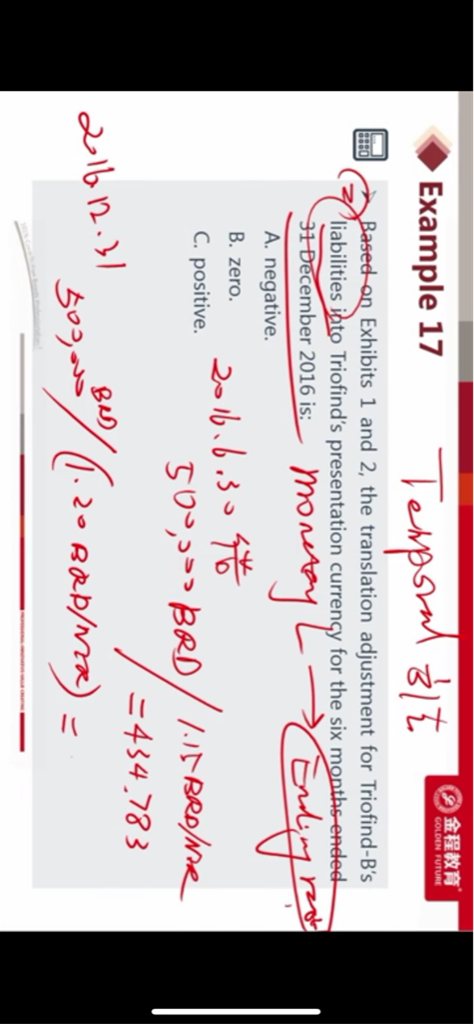 Example 17
Temporal
金程教育
GOLDEN FUTURE
(2) Based on Exhibits 1 and 2, the translation adjustment for Triofind-B's
liabilities into Triofind's presentation currency for the six months ended
31 December 2016 is:
monetary L → Ending rate
A. negative.
B. zero.
C. positive.
2016.6.30
500,000 BRD / 1.15 BRD/NER
= 434.783
2016.12.31
500,000 BRD / (1.20 BRD/NER) =